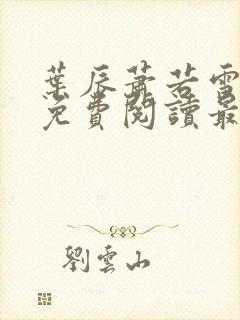 葉辰蕭若雪
免費閱讀最
劉雲山